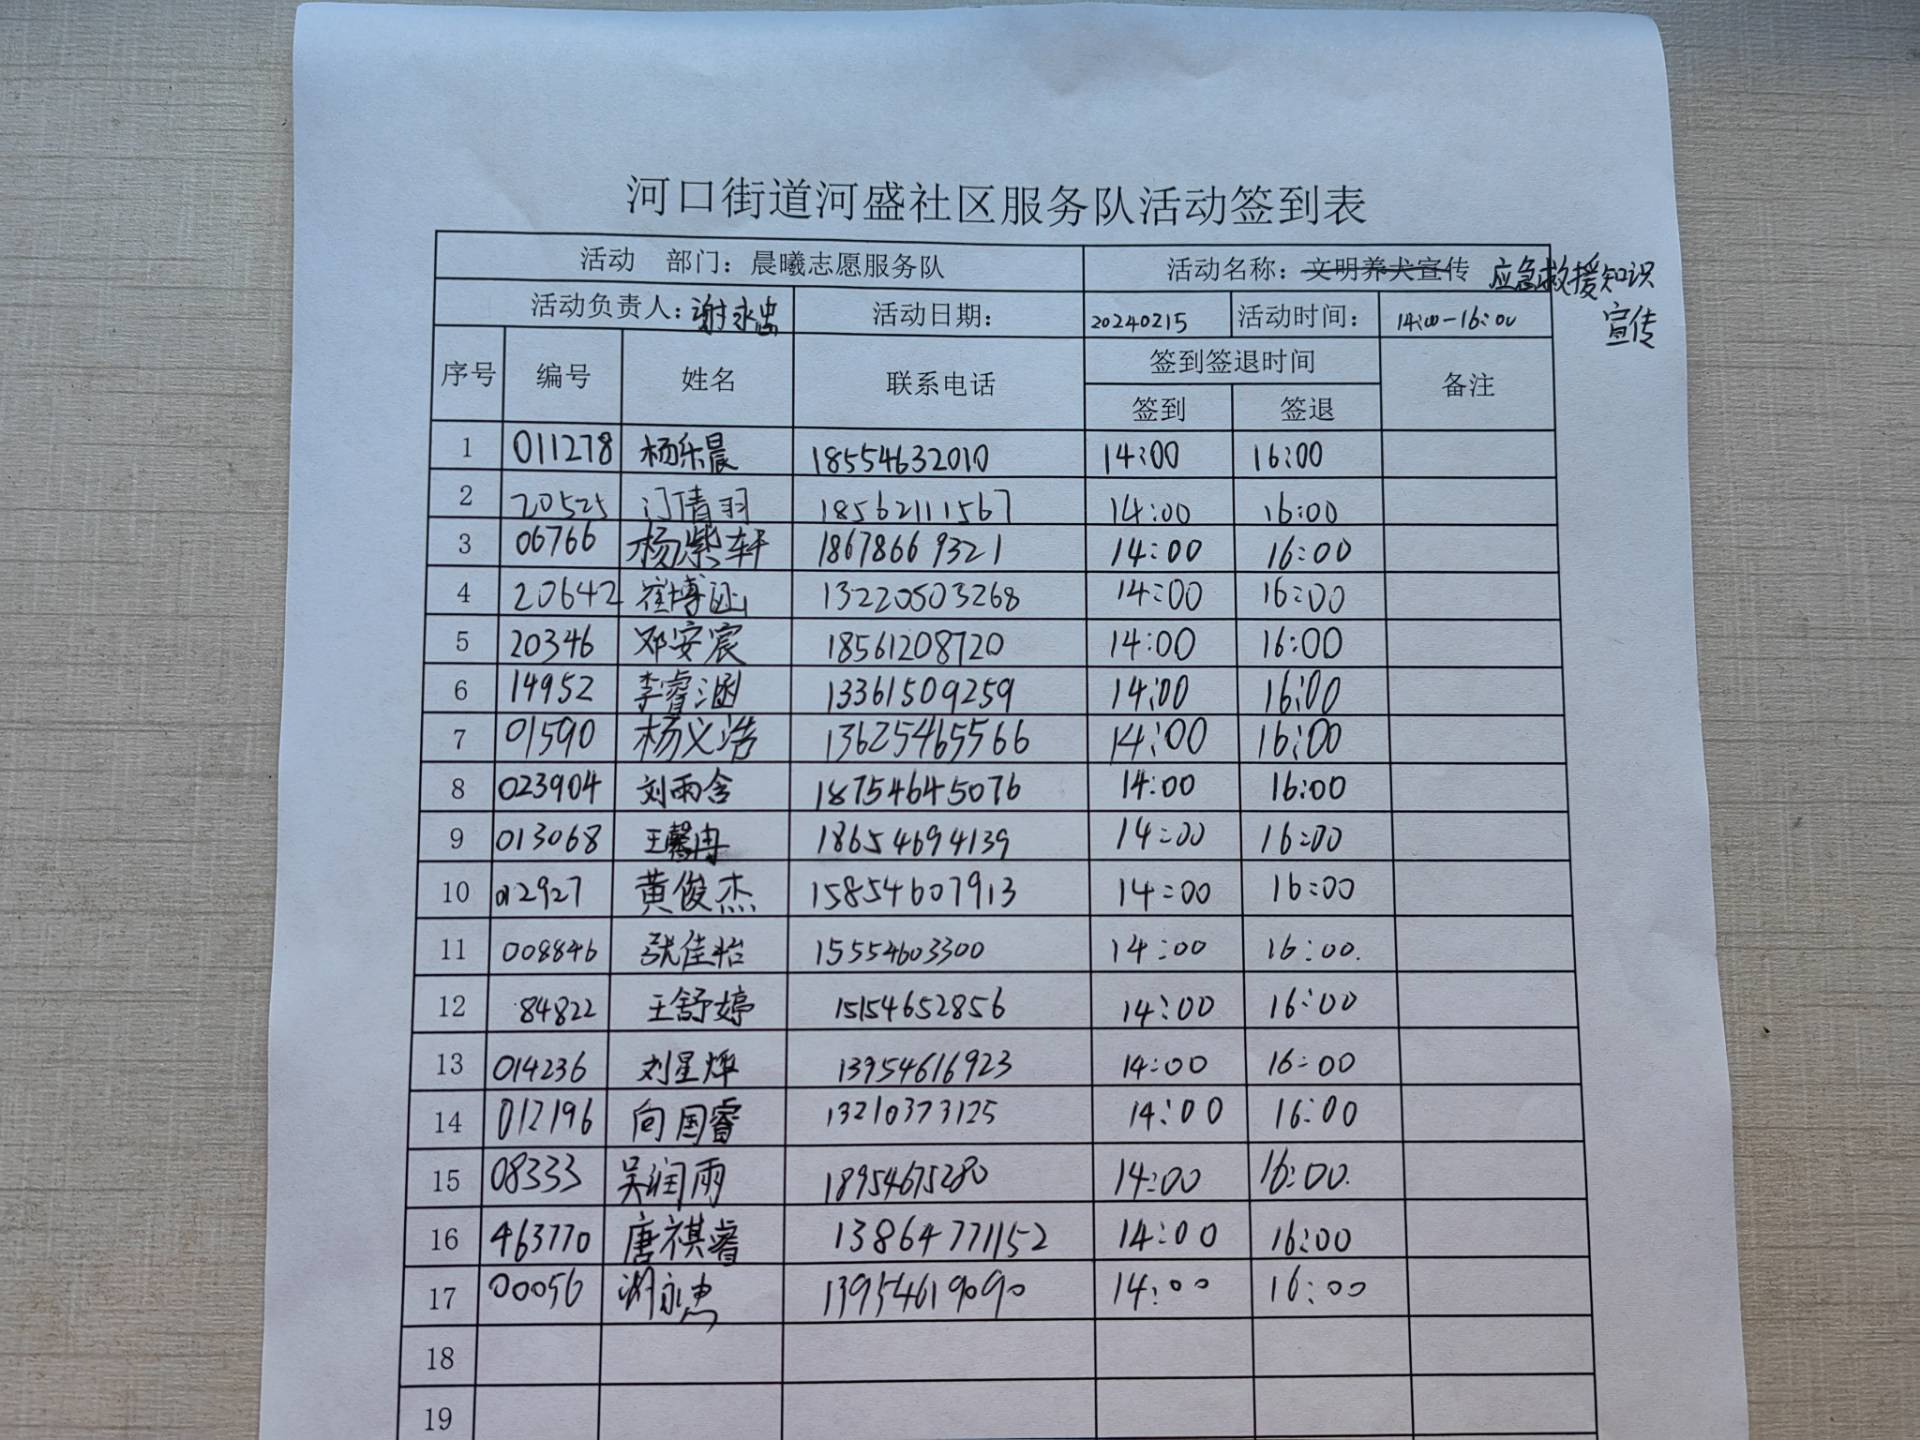 河口街道河盛社区服务队活动签到表
活动 部门：晨曦志愿服务队 活动名称：文明养犬宣传 应急救援知识
宣传
活动负责人：谢永忠 活动日期： 20240215 活动时间： 14:00-16:00
序号 编号 姓名 联系电话 签到签退时间 备注
签到 签退
1 011278 杨乐晨 18554632010 14:00 16:00
2 20525 门倩羽 18562111567 14:00 16:00
3 06766 杨紫轩 18678669321 14:00 16:00
4 20642 崔博 13220503268 14:00 16:00
5 20346 邓安宸 18561208720 14:00 16:00
6 14952 李睿涵 13361509259 14:00 16:00
7 01590 杨义浩 13625465566 14:00 16:00
8 023904 刘雨含 18754645076 14:00 16:00
9 013068 王馨冉 18654694139 14:00 16:00
10 012927 黄俊杰 15854607913 14:00 16:00
11 008846 张佳怡 15554603300 14:00 16:00.
12 84822 王舒婷 15154652856 14:00 16:00
13 014236 刘星烨 13954616923 14:00 16:00
14 012196 向国睿 13210373125 14:00 16:00
15 08333 吴润雨 18954675280 14:00 16:00.
16 463770 唐祺睿 13864771152 14:00 16:00
17 00056 谢永忠 13954619090 14:00 16:00
18
19